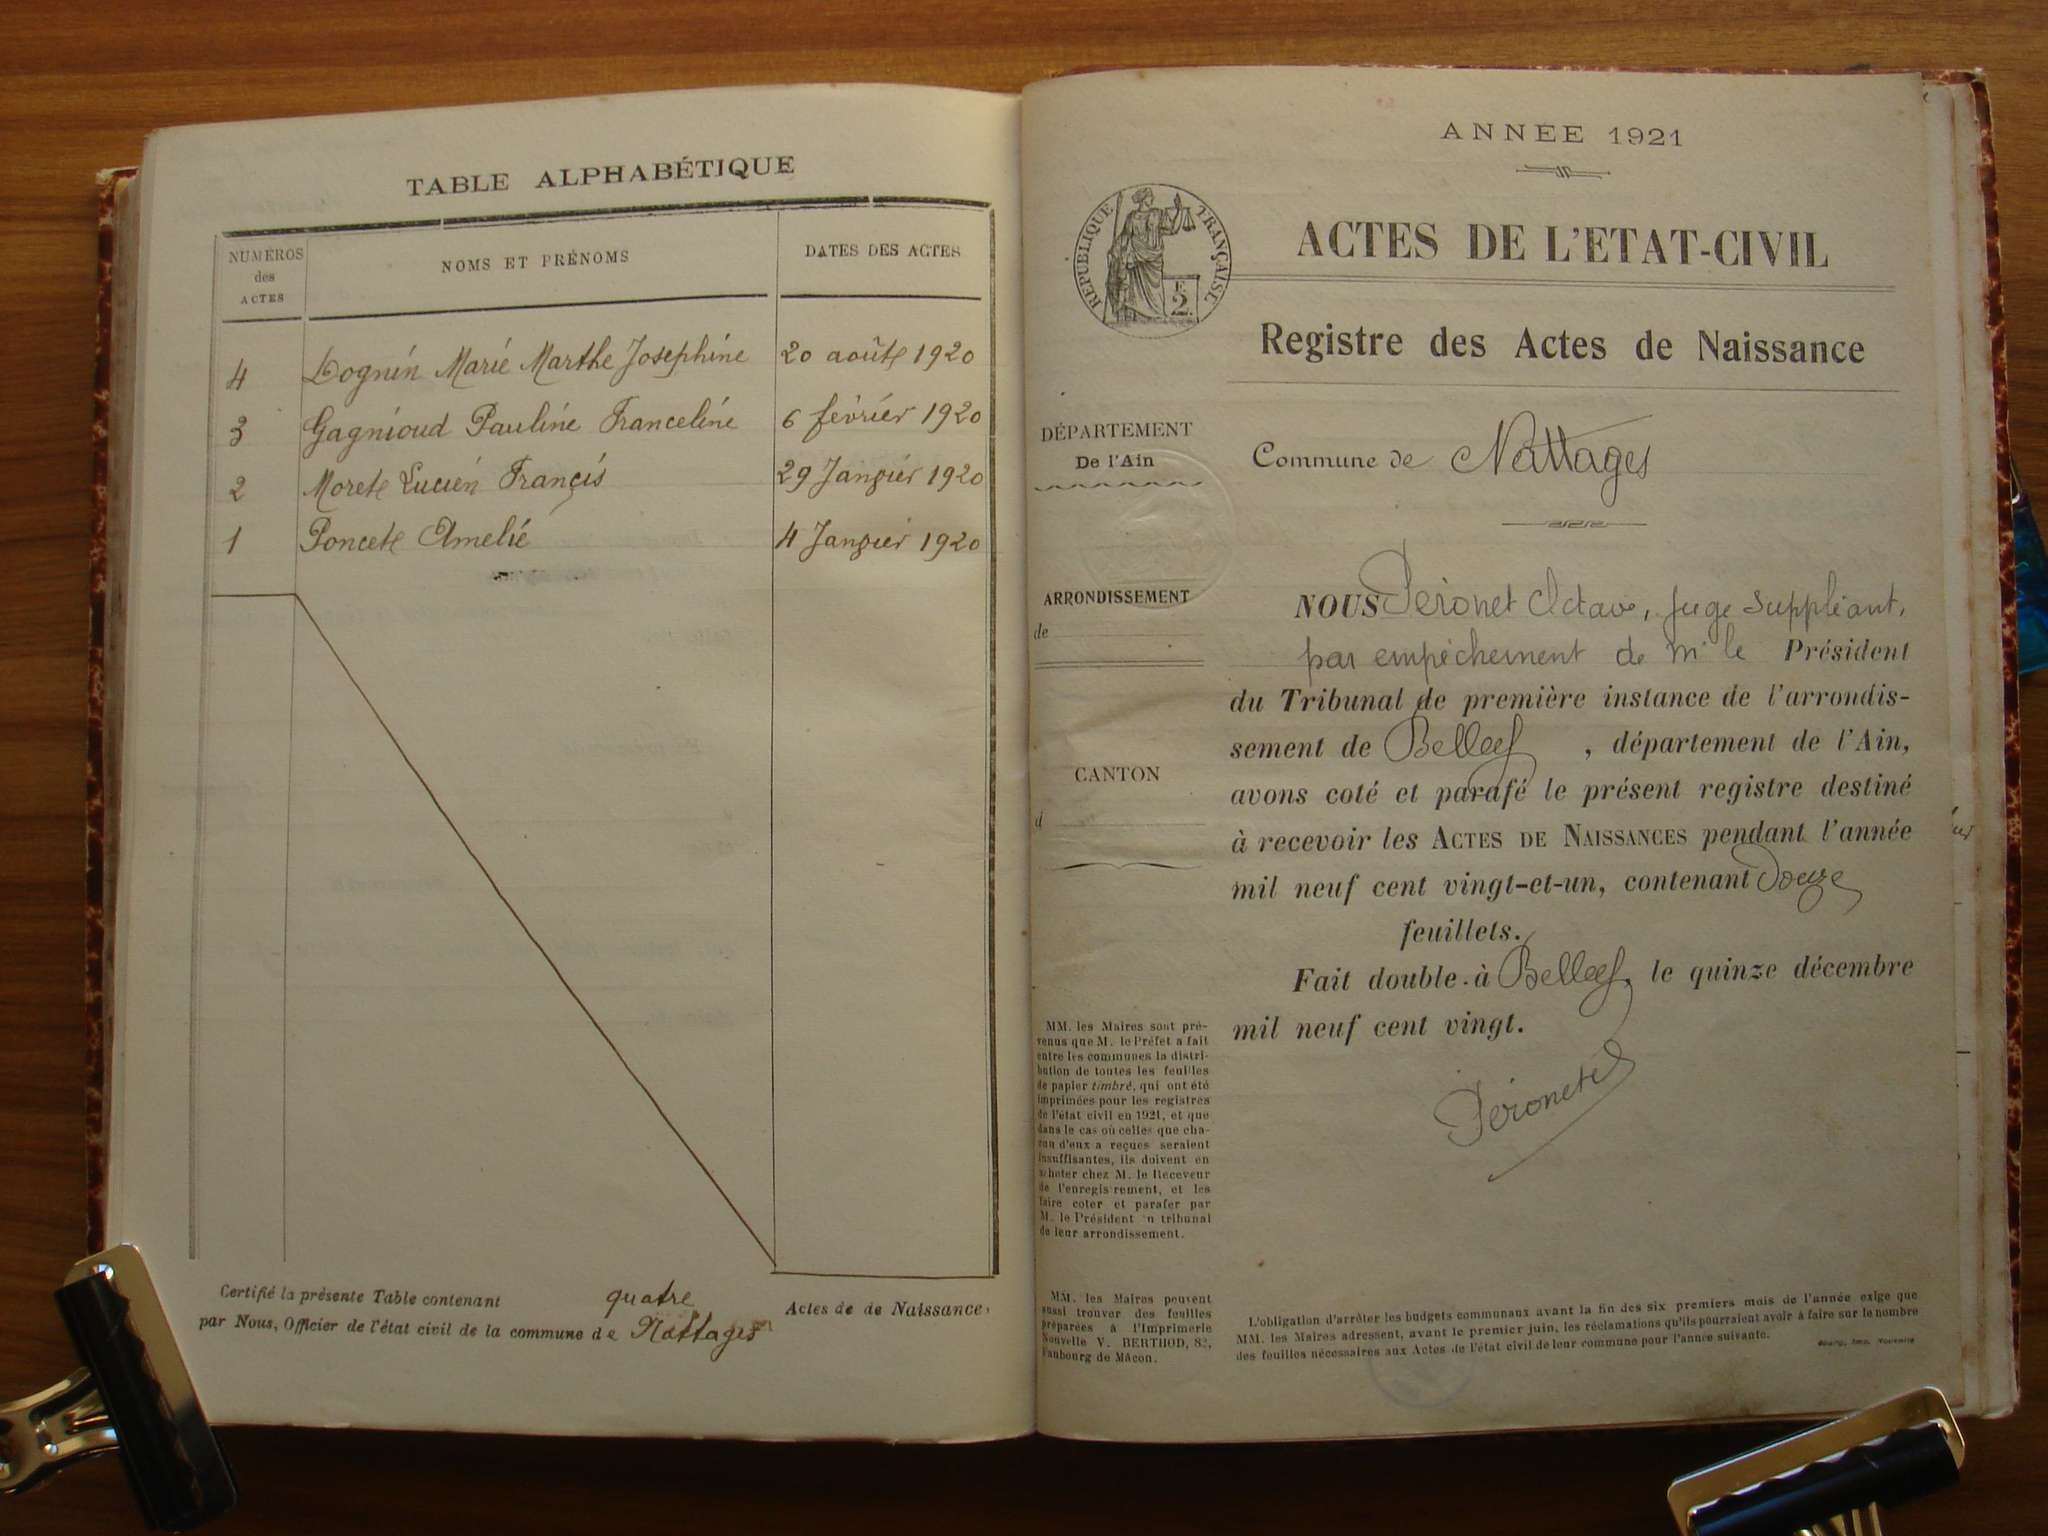 TABLE ALPHABÉTIQUE
NUMÉROS des ACTES NOMS ET PRÉNOMS DATES DES ACTES
4 Dognin Marie Marthe Josephine 20 août 1920
3 Gagnioud Pauline Franceline 6 février 1920
2 Moret Lucien Francis 29 Janvier 1920
1 Poncet Amelie 4 Janvier 1920
Certifié la présente Table contenant quatre Actes de de Naissance
par Nous, Officier de l'état civil de la commune de Nattages
ANNÉE 1921
RÉPUBLIQUE FRANÇAISE
F.
2
ACTES DE L'ETAT-CIVIL
Registre des Actes de Naissance
DÉPARTEMENT
De l'Ain
Commune de Nattages
ARRONDISSEMENT
de
CANTON
d
NOUS Peronet Octave, juge suppléant,
par empêchement de Mr le Président
du Tribunal de première instance de l'arrondis-
sement de Belley, département de l'Ain,
avons coté et parafé le présent registre destiné
à recevoir les ACTES DE NAISSANCES pendant l'année
mil neuf cent vingt-et-un, contenant Douze
feuillets.
Fait double à Belley, le quinze décembre
mil neuf cent vingt.
Peronet
MM. les Maires sont pré-
venus que M. le Préfet a fait
entre les communes la distri-
bution de toutes les feuilles
de papier timbré, qui ont été
imprimées pour les registres
de l'état civil en 1921, et que
dans le cas où celles que cha-
cun d'eux a reçues seraient
insuffisantes, ils doivent en
acheter chez M. le Receveur
de l'enregis rement, et les
faire coter et parafer par
M. le Président u tribunal
de leur arrondissement.
MM. les Maires peuvent
aussi trouver des feuilles
préparées à l'Imprimerie
Nouvelle V. BERTHOD, 82,
Faubourg de Mâcon.
L'obligation d'arrêter les budgets communaux avant la fin des six premiers mois de l'année exige que
MM. les Maires adressent, avant le premier juin, les réclamations qu'ils pourraient avoir à faire sur le nombre
des feuilles nécessaires aux Actes de l'état civil de leur commune pour l'année suivante.
Bourg, Imp. Nouvelle